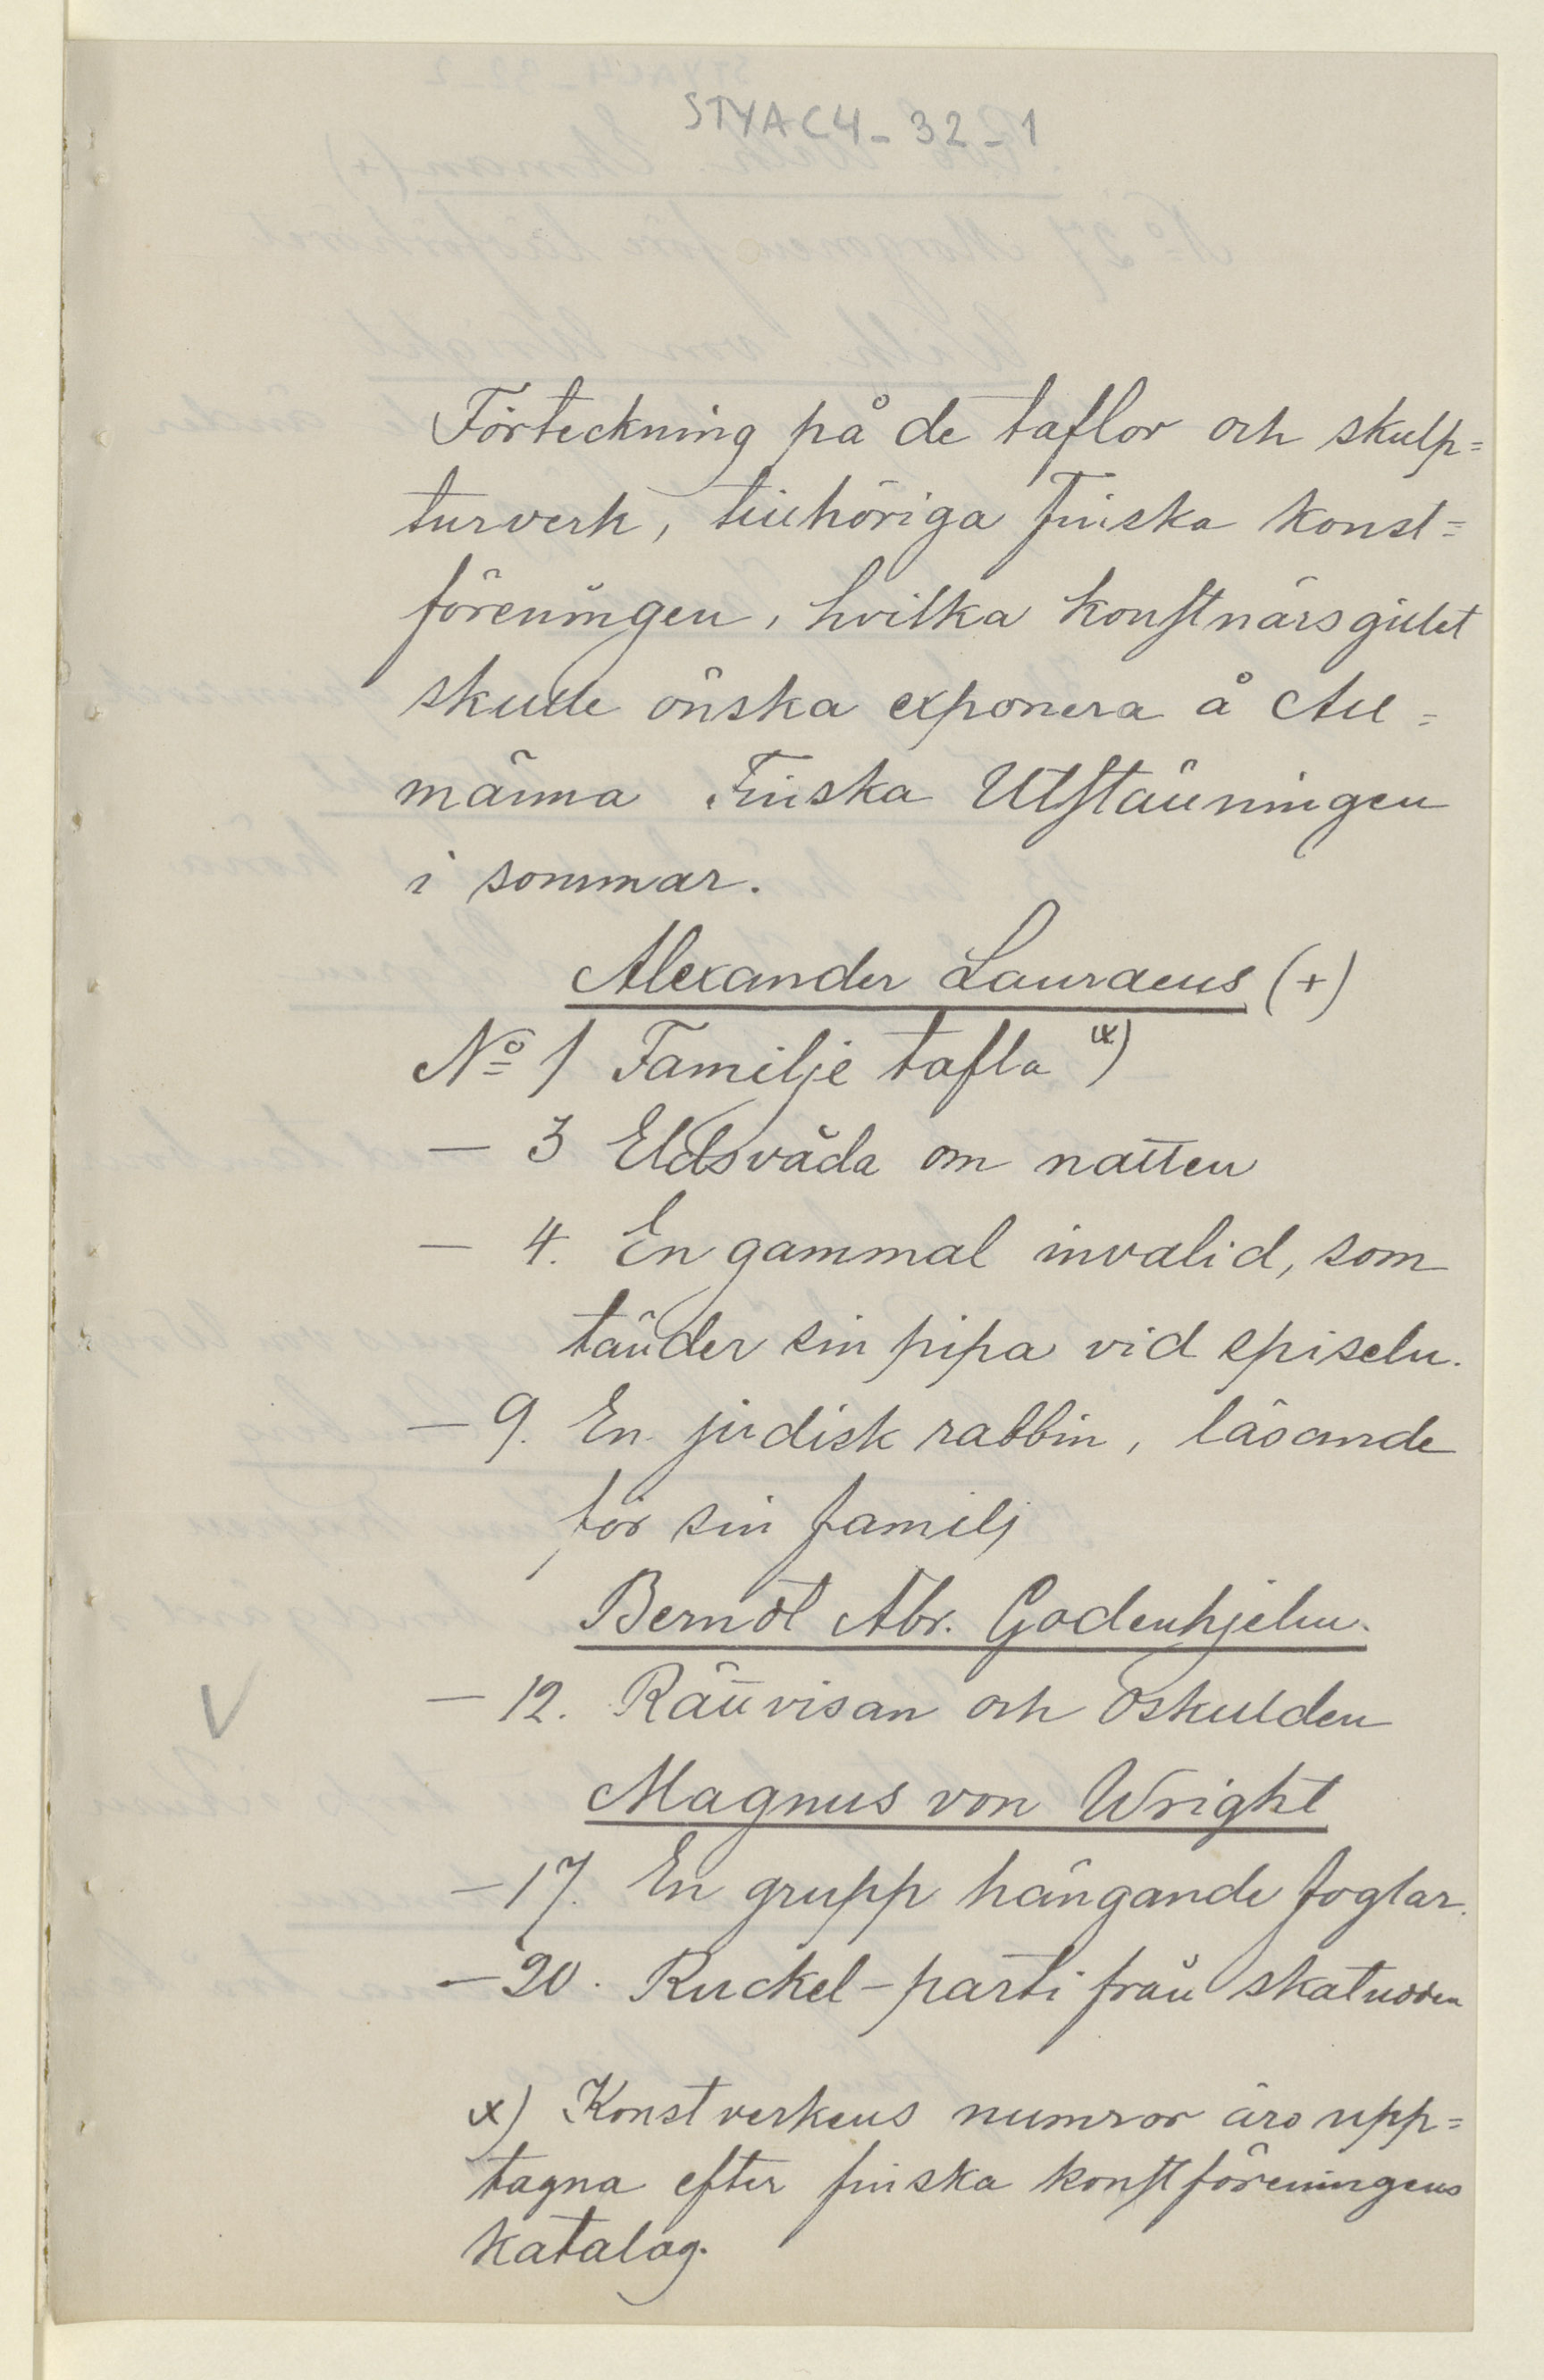 STYAC4-32-1
Förteckning på de taflor och skulp=
turverk, tillhöriga Finska Konst=
föreningen, hvilka Konstnärsgillet
skulle önska exponera å All=
männa Finska Utställningen
i sommar.
Alexander Lauraeus (+)
No 1 Familje tafla x)
— 3 Eldsvåda om natten
— 4. En gammal invalid, som
tänder sin pipa vid episeln.
— 9. En judisk rabbin, läsande
för sin familj
Berndt Abr. Godenhjelm.
V — 12. Rättvisan och Oskulden
Magnus von Wright
— 17. En grupp hängande foglar.
— 20. Ruckel-parti från skatudden
x) Konstverkens numror äro upp=
tagna efter finska konstföreningens
katalog.